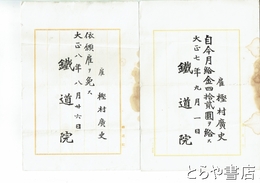 雇 樫村廣史
自今月給金四拾貳圓ヲ給ス
大正七年九月一日
鐵道院
雇 樫村廣史
依願雇ヲ免ス
大正八年八月廿六日
鐵道院
とらや書店